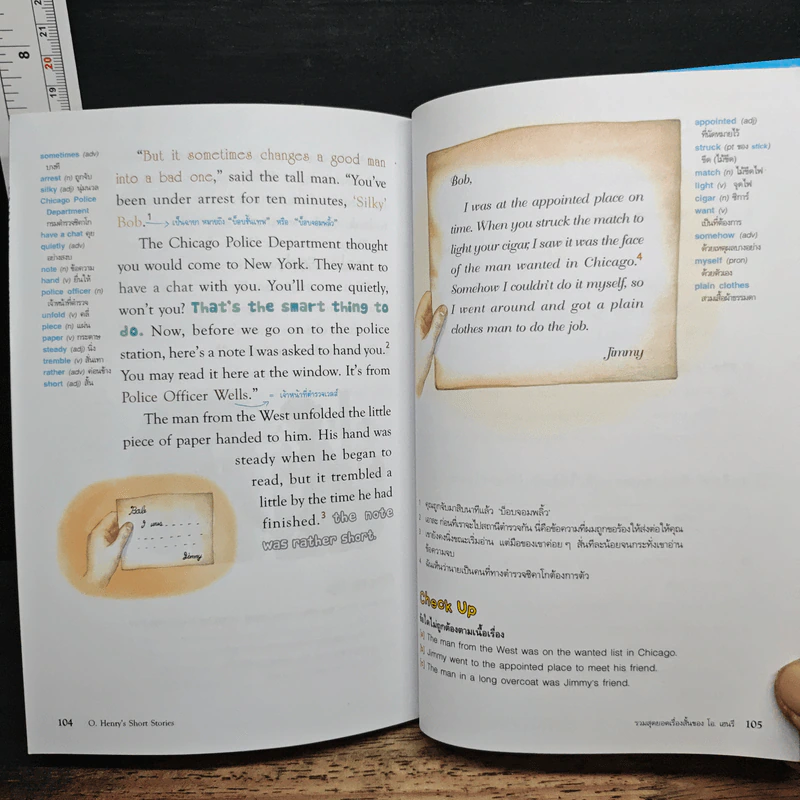 8
21
20
19
sometimes (adv)
บางที
arrest (n) ถูกจับ
silky (adj) นุ่มนวล
Chicago Police
Department
กรมตำรวจชิคาโก
have a chat คุย
quietly (adv)
อย่างสงบ
note (n) ข้อความ
hand (v) ยื่นให้
police officer (n)
เจ้าหน้าที่ตำรวจ
unfold (v) คลี่
piece (n) แผ่น
paper (v) กระดาษ
steady (adj) นิ่ง
tremble (v) สั่นเทา
rather (adv) ค่อนข้าง
short (adj) สั้น
"But it sometimes changes a good man
into a bad one," said the tall man. "You've
been under arrest for ten minutes, 'Silky'
Bob.1 เป็นฉายา หมายถึง "บ๊อบลิ้นแพร" หรือ "บ๊อบจอมพลิ้ว"
The Chicago Police Department thought
you would come to New York. They want to
have a chat with you. You'll come quietly,
won't you? That's the smart thing to
do. Now, before we go on to the police
station, here's a note I was asked to hand you.2
You may read it here at the window. It's from
Police Officer Wells." เจ้าหน้าที่ตำรวจเวลส์
The man from the West unfolded the little
piece of paper handed to him. His hand was
steady when he began to
read, but it trembled a
little by the time he had
finished.3 The note
was rather short.
Bob
I was
Jimmy
104 O. Henry's Short Stories
Bob,
I was at the appointed place on
time. When you struck the match to
light your cigar, I saw it was the face
of the man wanted in Chicago.4
Somehow I couldn't do it myself, so
I went around and got a plain
clothes man to do the job.
Jimmy
appointed (adj)
ที่นัดหมายไว้
struck (pt ของ stick)
ขีด (ไม้ขีด)
match (n) ไม้ขีดไฟ
light (v) จุดไฟ
cigar (n) ซิการ์
want (v)
เป็นที่ต้องการ
somehow (adv)
ด้วยเหตุผลบางอย่าง
myself (pron)
ด้วยตัวเอง
plain clothes
สวมเสื้อผ้าธรรมดา
1 คุณถูกจับมาสิบนาทีแล้ว 'บ๊อบจอมพลิ้ว'
2 เอาละ ก่อนที่เราจะไปสถานีตำรวจกัน นี่คือข้อความที่ผมถูกขอร้องให้ส่งต่อให้คุณ
3 เขายังคงนิ่งขณะเริ่มอ่าน แต่มือของเขาค่อย ๆ สั่นทีละน้อยจนกระทั่งเขาอ่าน
ข้อความจบ
4 ฉันเห็นว่านายเป็นคนที่ทางตำรวจชิคาโกต้องการตัว
Check Up
ข้อใดไม่ถูกต้องตามเนื้อเรื่อง
(a) The man from the West was on the wanted list in Chicago.
(b) Jimmy went to the appointed place to meet his friend.
(c) The man in a long overcoat was Jimmy's friend.
รวมสุดยอดเรื่องสั้นของ โอ. เฮนรี 105